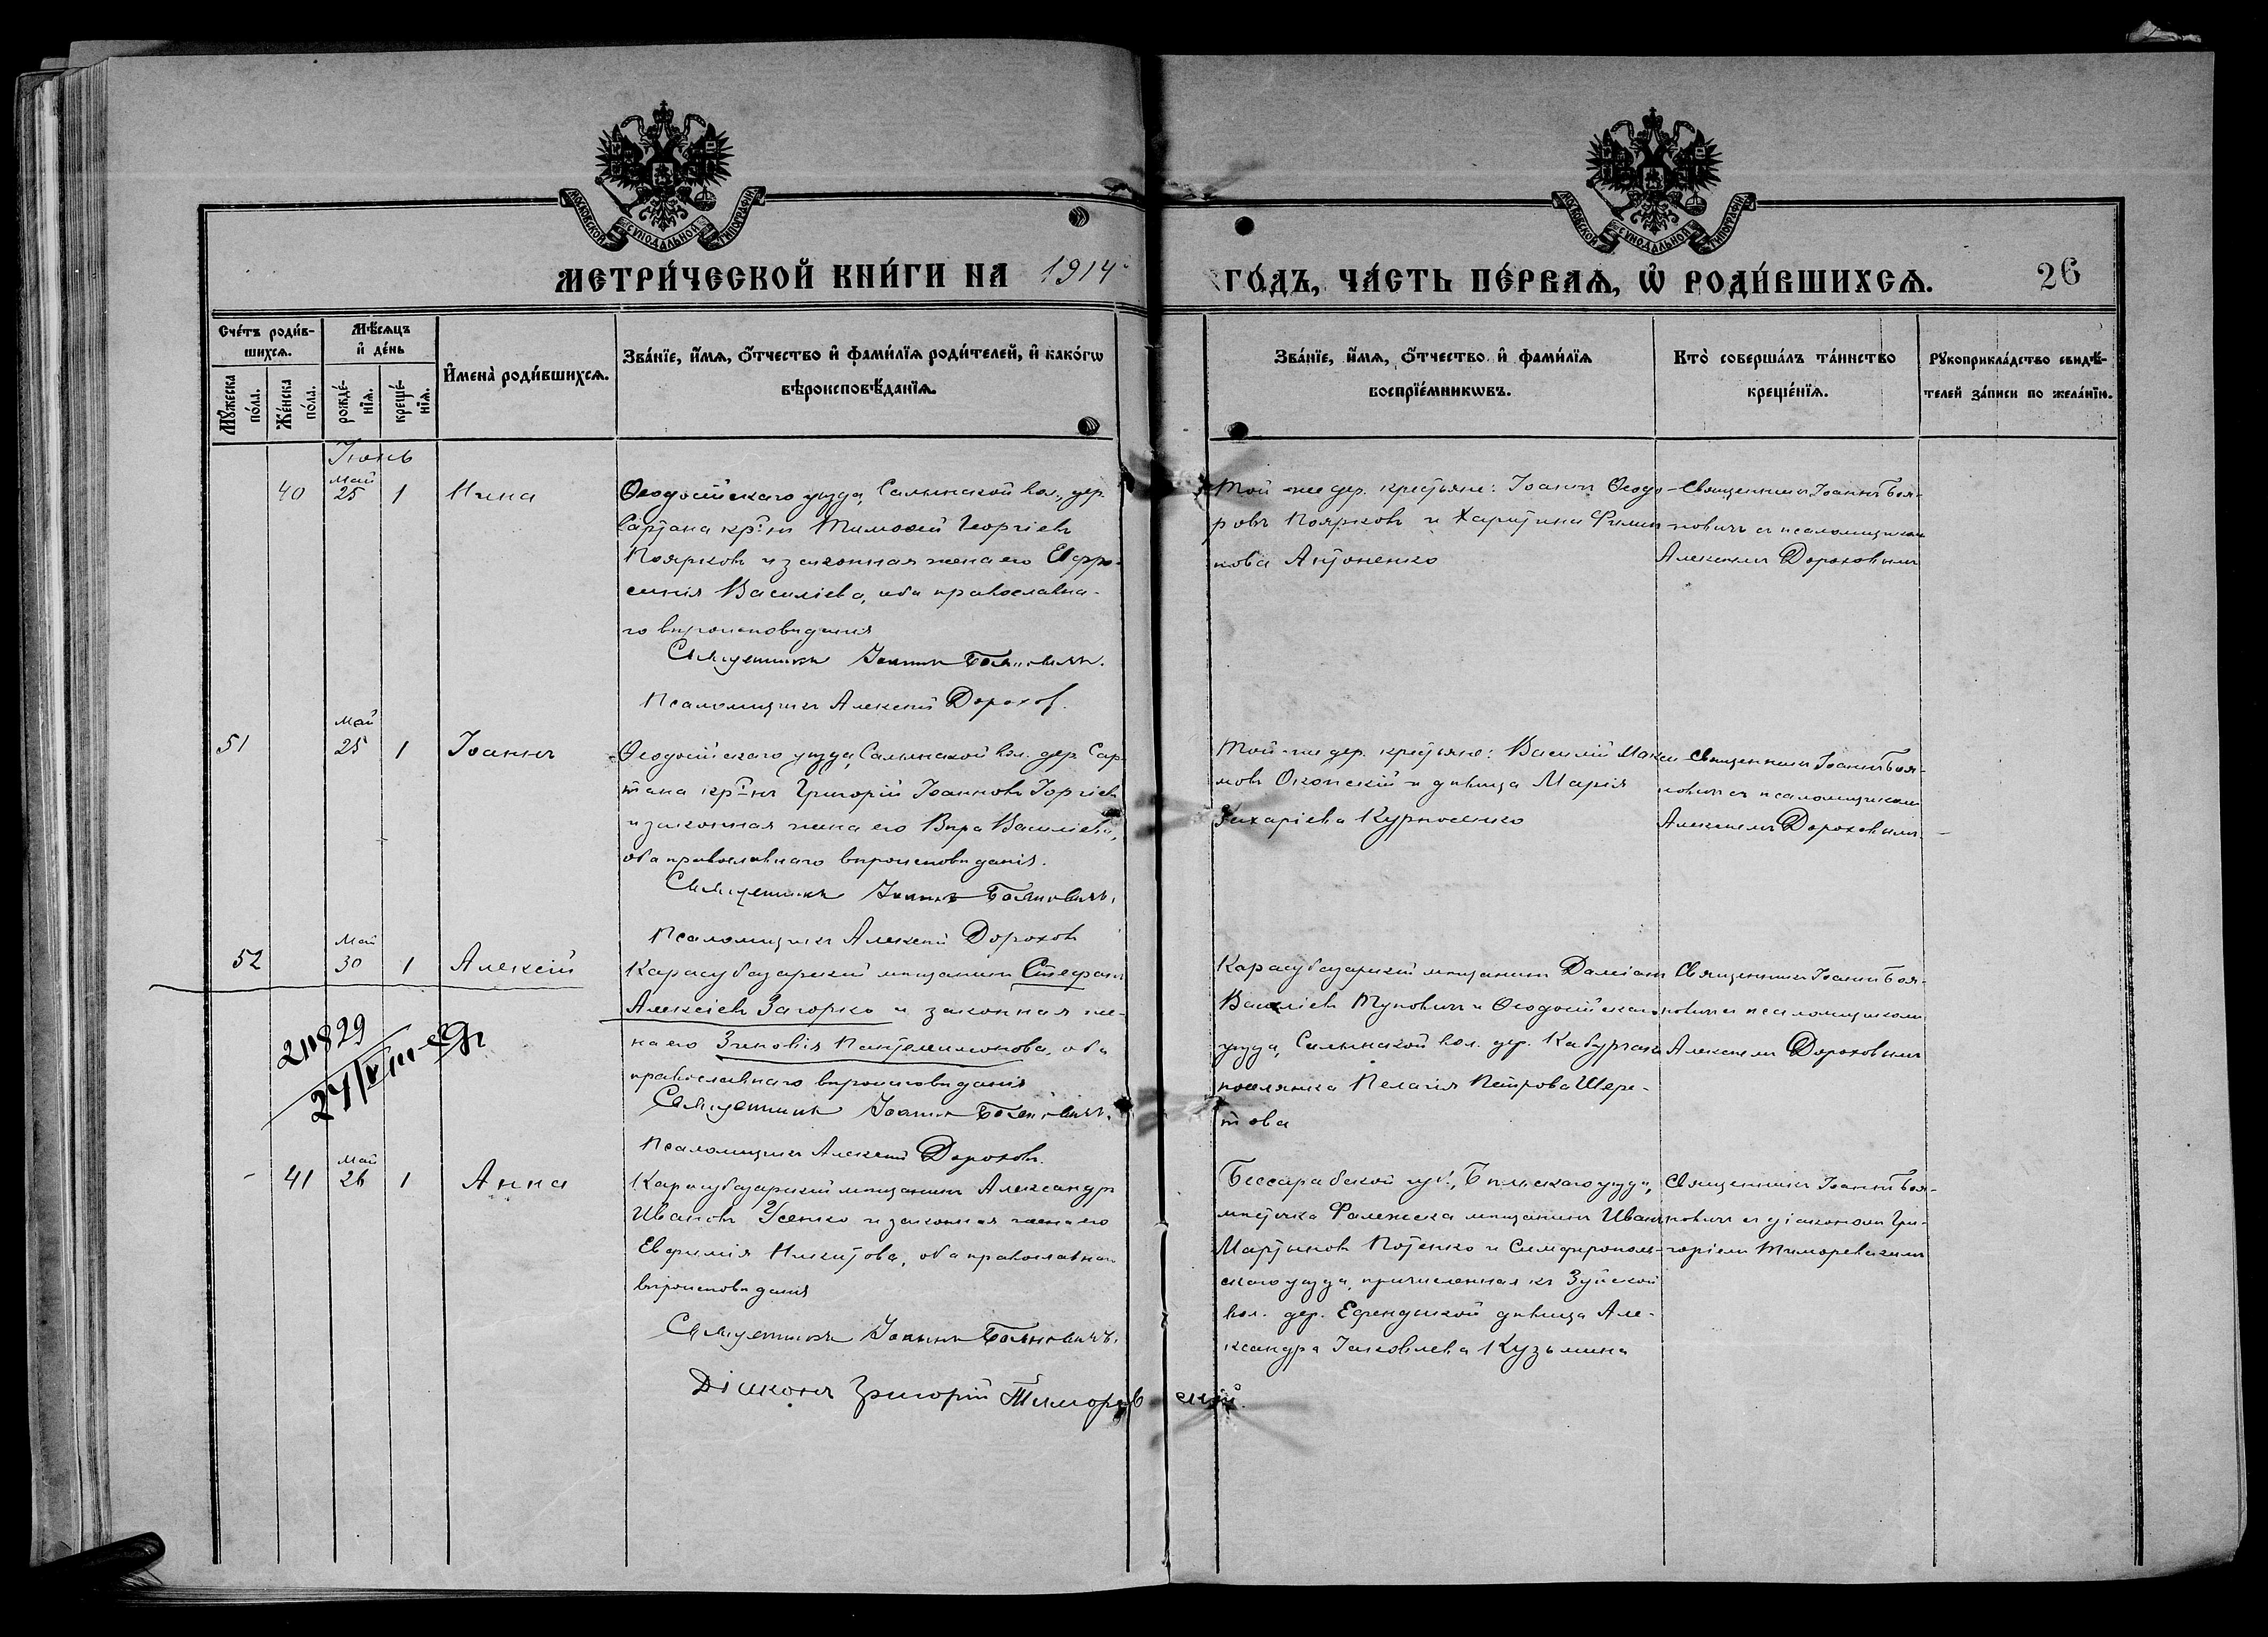 МОСКОВСКОЙ СѴНОДАЛЬНОЙ ТИПОГРАФІИ
МОСКОВСКОЙ СѴНОДАЛЬНОЙ ТИПОГРАФІИ
МЕТРИ́ЧЕСКОЙ КНИ́ГИ НА 1914 ГО́ДЪ, ЧА́СТЬ ПЕ́РВАѦ, Ѡ҆ РОДИ́ВШИХСѦ. 26
Сче́тъ роди́вшихсѧ.
Мꙋ́жеска по́ла.
Же́нска по́ла.
Мѣ́сѧцъ и҆ де́нь
рожде́нїѧ.
креще́нїѧ.
И҆мена̀ роди́вшихсѧ.
Зва́нїе, и҆́мѧ, ѻ҆́тчество и҆ фами́лїѧ роди́телей, и҆ како́гѡ
вѣроисповѣ́данїѧ.
Зва́нїе, и҆́мѧ, ѻ҆́тчество и҆ фами́лїѧ
воспрїе́мникѡвъ.
Кто̀ соверша́лъ та́инство
креще́нїѧ.
Рꙋкоприкла́дство свидѣ́-
телей за́писи по жела́нїю.
Іюнь
40 Май 25 1 Нина
Ѳеодосійскаго уѣзда, Салынской вол., дер.
Сартана кр-нъ Тимоѳей Георгіевъ
Поярковъ и законная жена его Евфро-
синія Василіева, оба православна-
го вѣроисповѣданія
Священникъ Іоаннъ Бояновичъ.
Псаломщикъ Алексій Дорохов.
Той-же дер. крестьяне: Іоаннъ Ѳеодо-
ровъ Поярковъ и Харитина Филип-
пова Антоненко
Священникъ Іоаннъ Боя-
новичъ съ псаломщикомъ
Алексіемъ Дороховымъ
51 Май 25 1 Іоаннъ
Ѳеодосійскаго уѣзда, Салынской вол. дер. Сар-
тана кр-нъ Григорій Іоанновъ
и законная жена его Вѣра Василіева,
оба православнаго вѣроисповѣданія.
Священникъ Іоаннъ Бояновичъ.
Псаломщикъ Алексій Дороховъ
Той-же дер. крестьяне: Василій Макси-
мовъ Оконскій и дѣвица Марія
Захаріева Курносенко
Священникъ Іоаннъ Боя-
новичъ съ псаломщикомъ
Алексіемъ Дороховымъ
52 Май 30 1 Алексій
Карасубазарскій мѣщанинъ Стефанъ
Алексіевъ Загорко и законная же-
на его Зиновія Пантелеимонова, оба
православнаго вѣроисповѣданія
Священникъ Іоаннъ Бояновичъ.
Псаломщикъ Алексій Дороховъ.
Карасубазарскій мѣщанинъ Даміанъ
Василіевъ Туповичъ и Ѳеодосійскаго
уѣзда, Салынской вол. дер.
поселянка Пелагія Петрова Шере-
това
Священникъ Іоаннъ Боя-
новичъ съ псаломщикомъ
Алексіемъ Дороховымъ
41 Май 26 1 Анна
Карасубазарскій мѣщанинъ Александръ
Ивановъ Усенко и законная жена его
Евфимія Никитова, оба православнаго
вѣроисповѣданія
Священникъ Іоаннъ Бояновичъ.
Діаконъ Григорій Тиморевскій.
Бессарабской губ., Бѣльскаго уѣзда,
мѣстечка Фалешска мѣщанинъ Иванъ
Мартыновъ Потенко и Симферополь-
скаго уѣзда, причисленная къ Зуйской
вол. дер. дѣвица Але-
ксандра Іаковлева Кузьмина
Священникъ Іоаннъ Боя-
новичъ съ діакономъ Гри-
горіемъ Тиморевскимъ